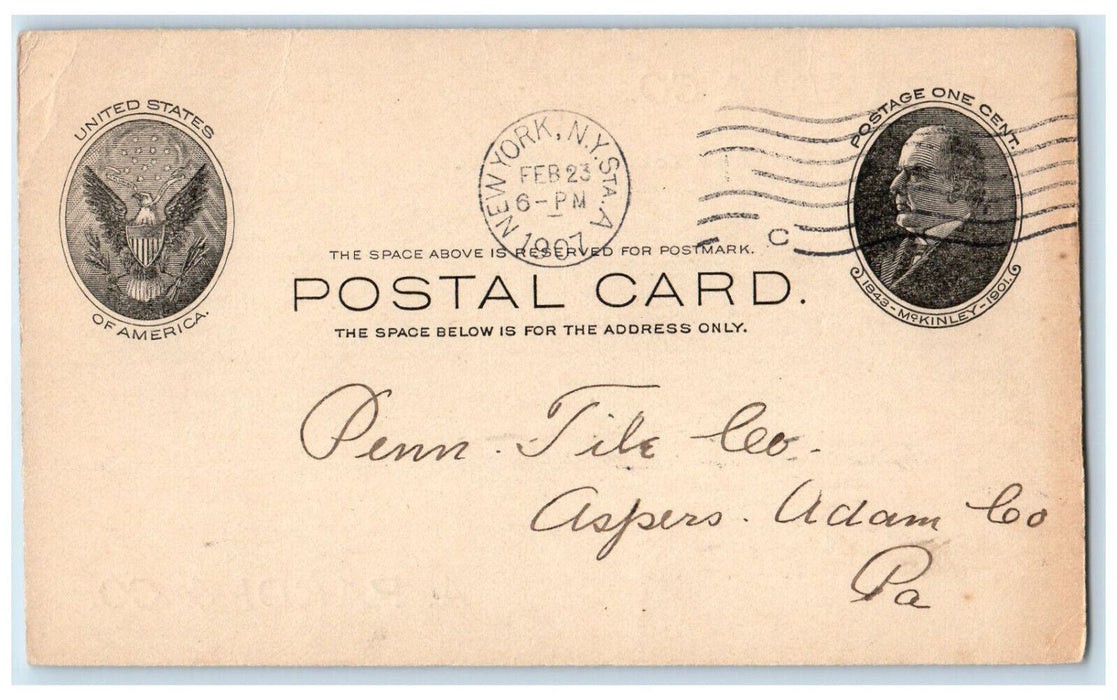 UNITED STATES
OF AMERICA.
NEW YORK, N.Y. STA. A
FEB 23
6-PM
1907
C
POSTAGE ONE CENT.
1843-McKINLEY-1901.
THE SPACE ABOVE IS RESERVED FOR POSTMARK.
POSTAL CARD.
THE SPACE BELOW IS FOR THE ADDRESS ONLY.
Penn. Tile Co.
Aspers. Adam Co
Pa